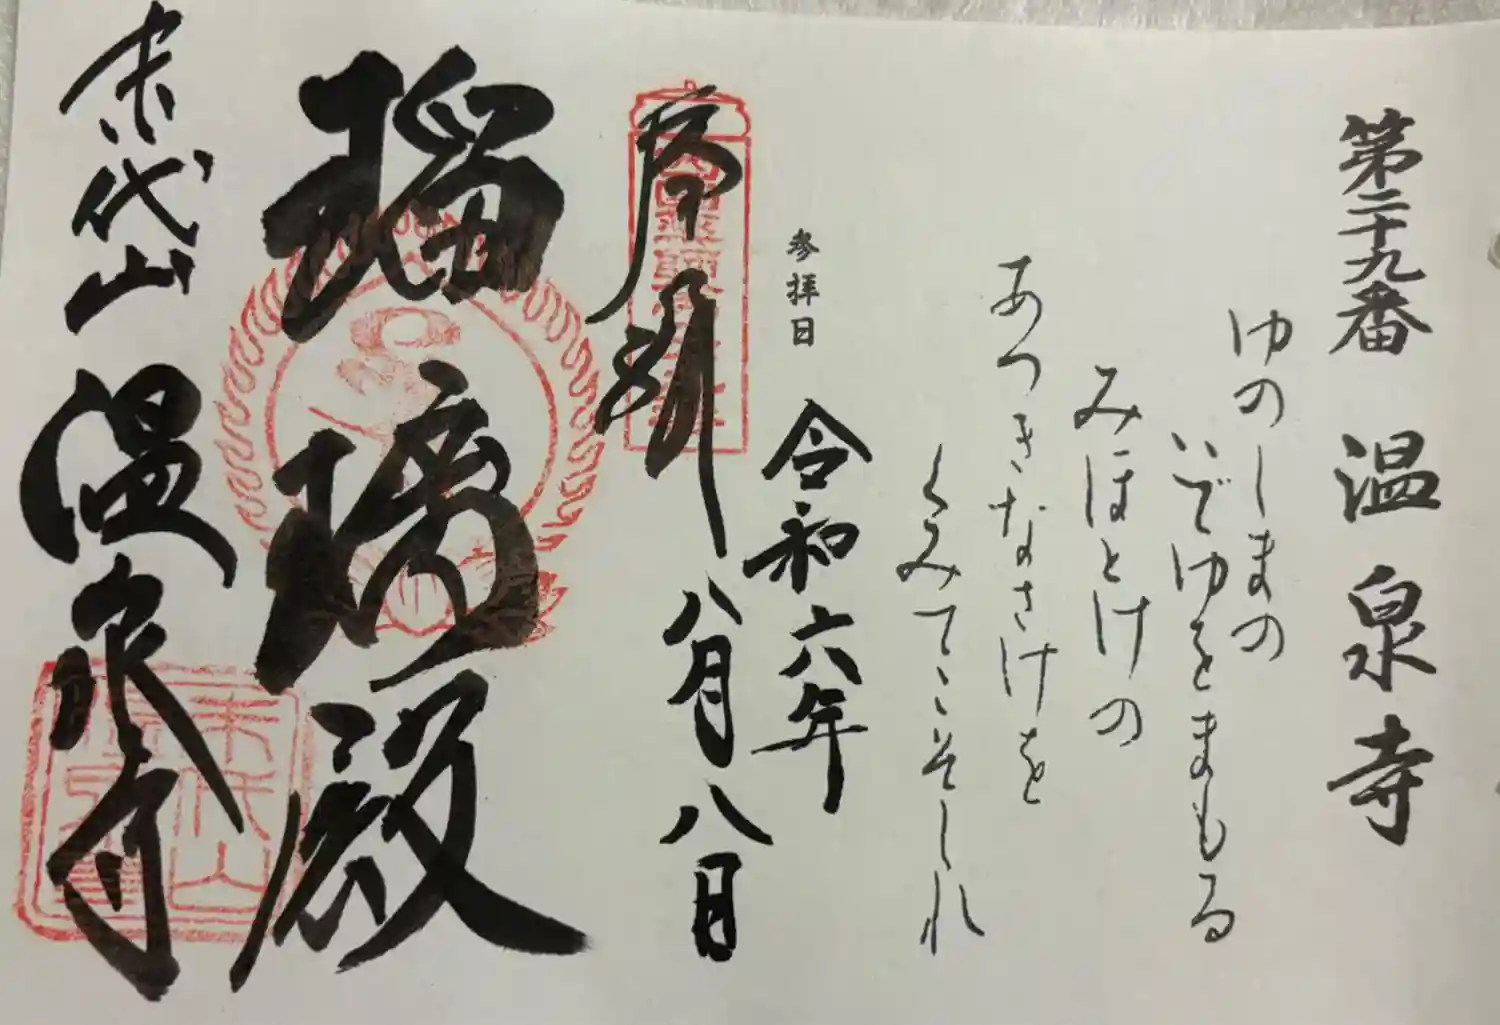 第二十九番 温泉寺
ゆのしまの
いでゆをまもる
みほとけの
あつきなさけを
くみてこそしれ
参拝日
令和六年
八月八日
奉拝
瑠璃殿
末代山 温泉寺
末代山